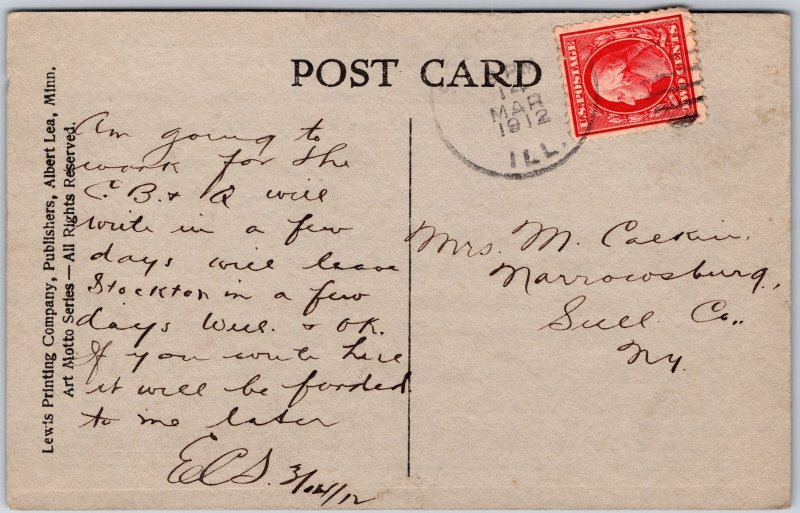 POST CARD
Lewis Printing Company, Publishers, Albert Lea, Minn.
Art Motto Series — All Rights Reserved.
U.S. POSTAGE
14
MAR
1912
ILL.
Am going to
work for the
C. B. & Q will
write in a few
days will leave
Stockton in a few
days Well. & OK.
If you write here
it will be forded
to me later
ECS. 3/14/12
Mrs. M. Calkin.
Narrowsburg,
Sull. Co.,
Ny.